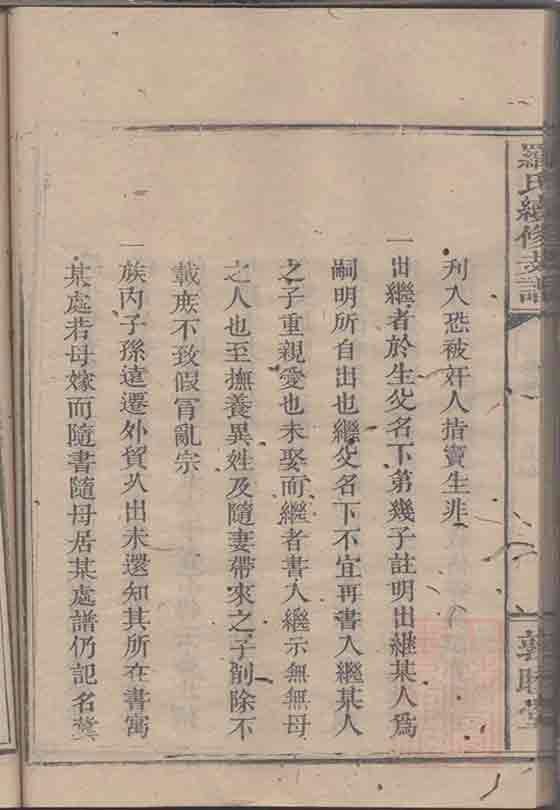 羅氏續修支譜
敦睦堂
刋入恐被奸人指賣生非
一出繼者於生父名下第幾子註明出継某人爲
嗣明所自出也繼父名下不宜再書入繼某人
之子重親愛也未娶而繼者書入繼示無無母
之人也至撫養異姓及隨妻帶來之子削除不
載庻不致假冐亂宗
一族內子孫遠遷外貿久出未還知其所在書寓
某處若母嫁而隨書隨母居某處譜仍記名冀